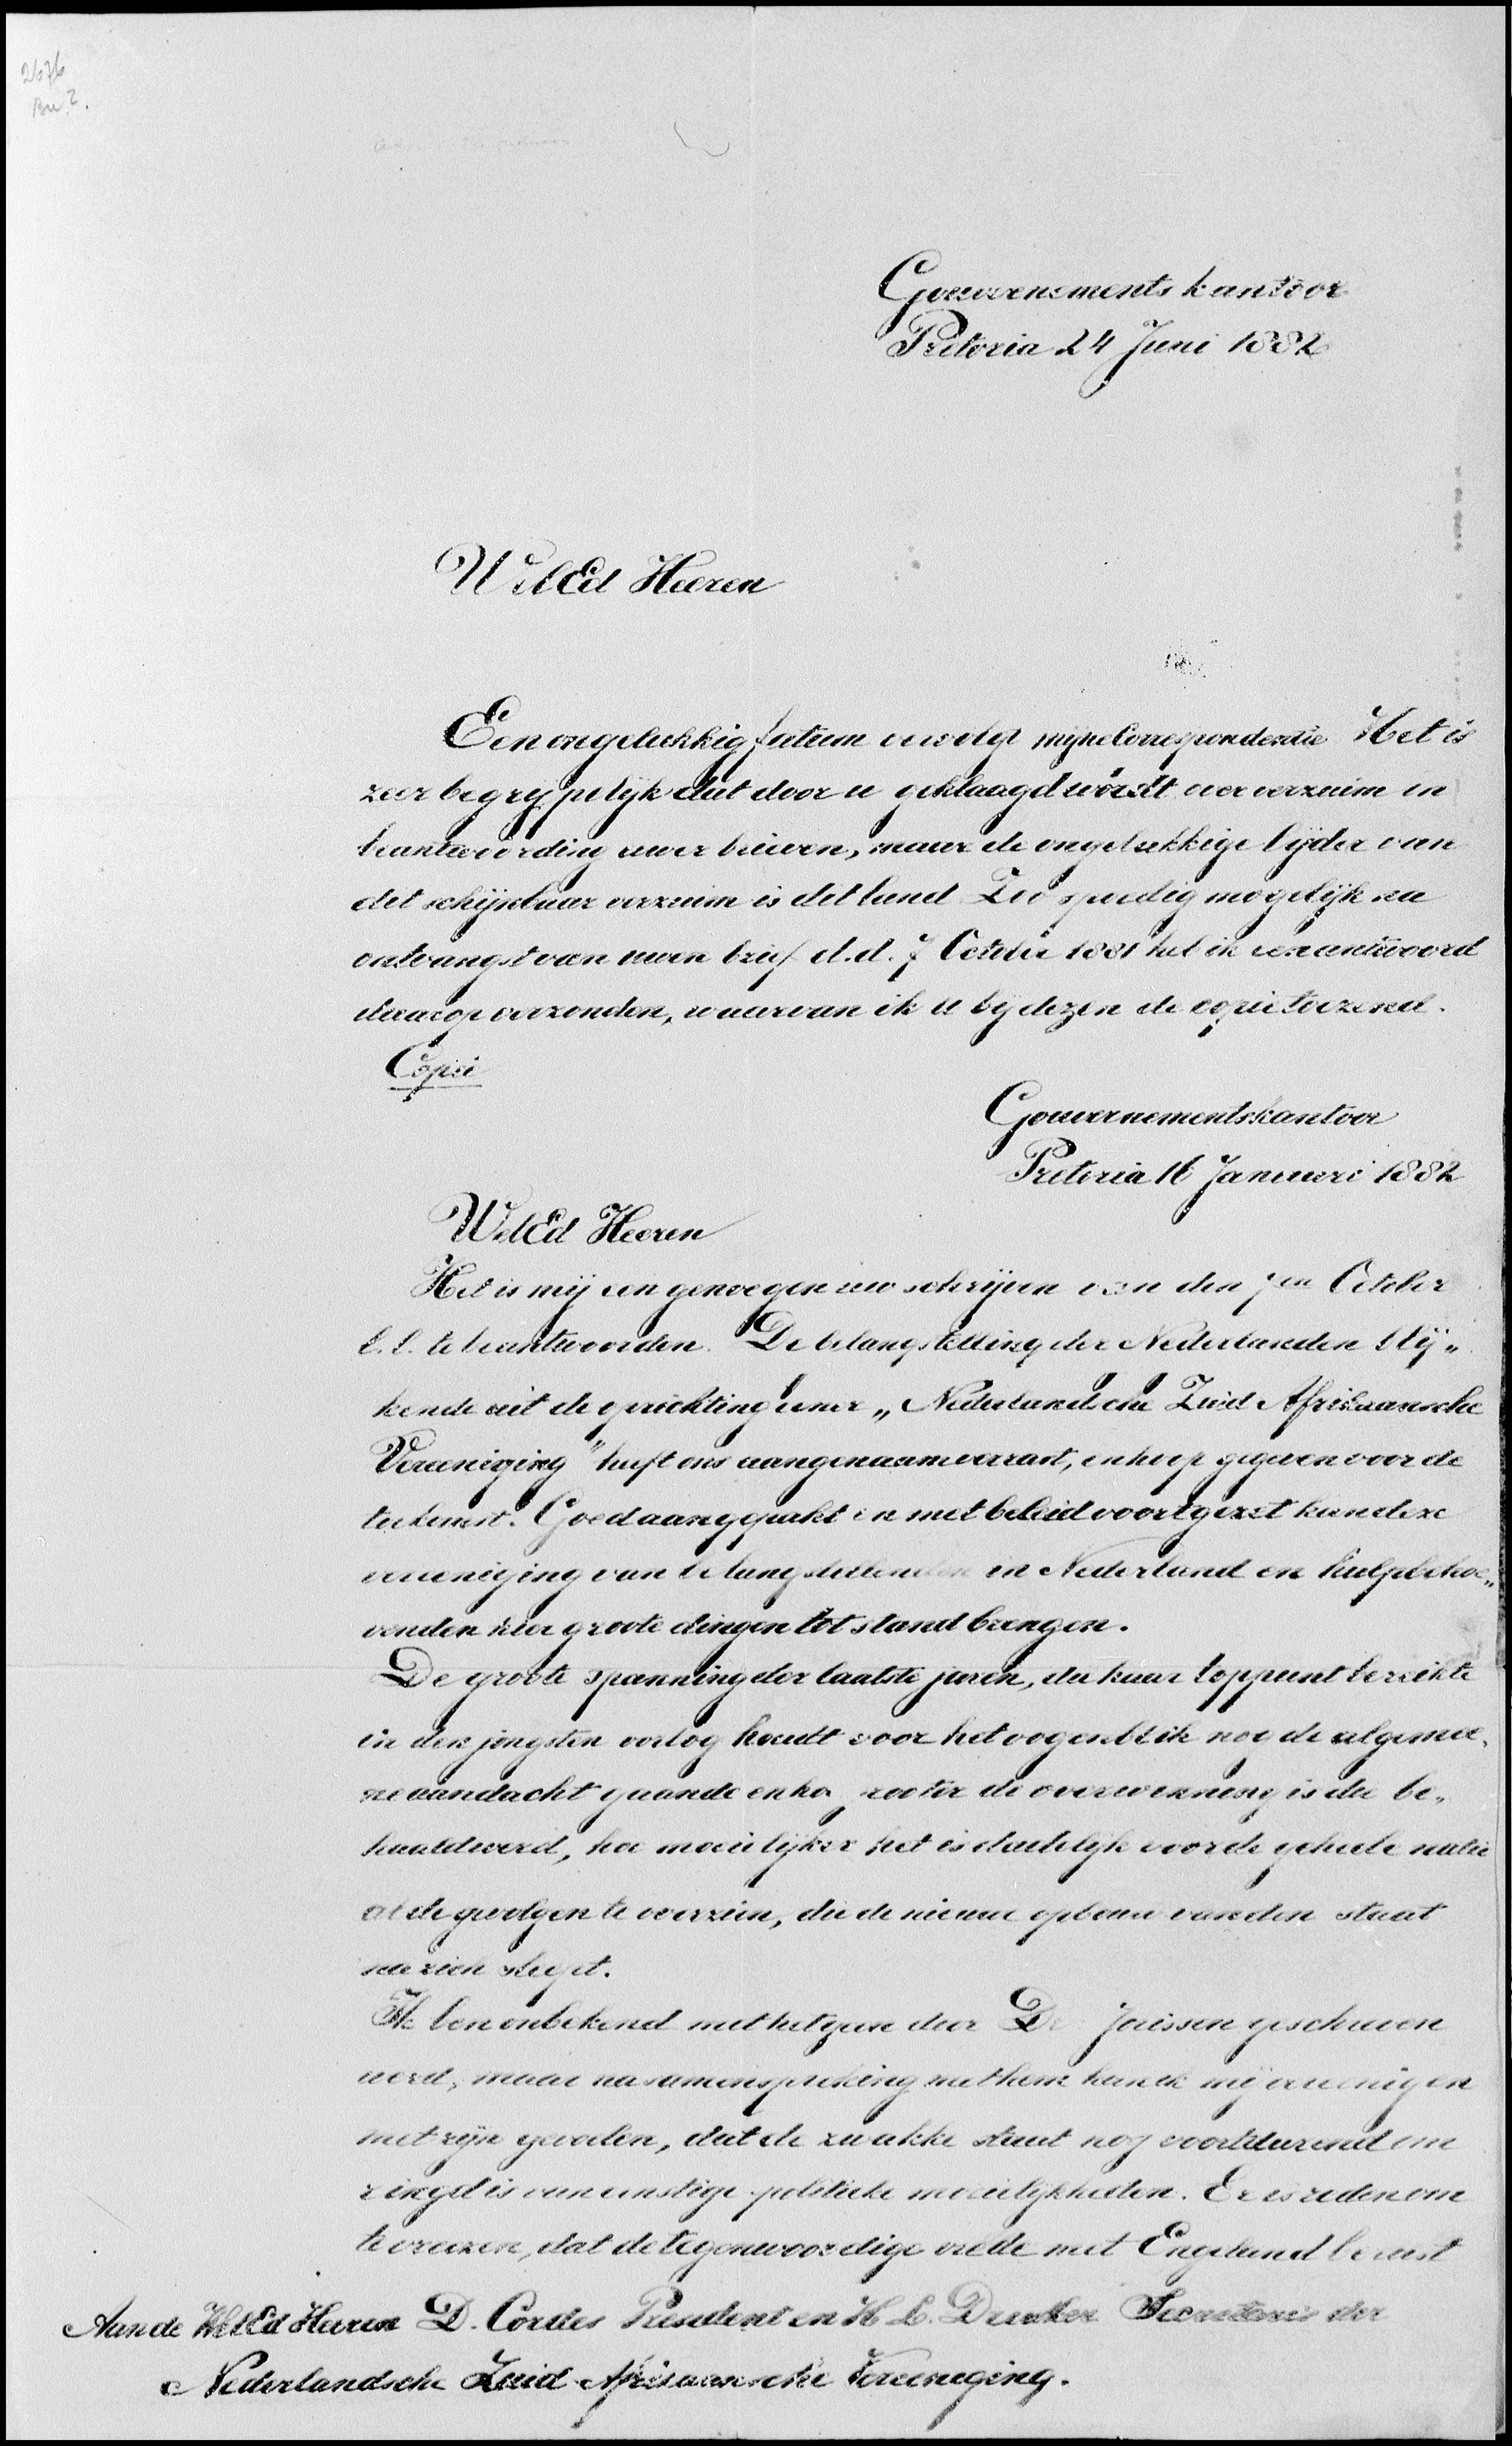 2676
Gouvernements kantoor
Pretoria 24 Juni 1882
WelEd Heeren
Een ongelukkig fatum vervolgt mijne Correspondentie Het is
zeer begrijpelijk dat door u geklaagd wordt over verzuim in
beantwoording uwer brieven, maar de ongelukkige lijder van
dit schijnbaar verzuim is dit land Zoo spoedig mogelijk na
ontvangst van uwen brief d.d. 7 October 1881 heb ik een antwoord
daarop verzonden, waarvan ik u bij dezen de copie toezend.
Copie
Gouvernementskantoor
Pretoria 16 Januari 1882
WelEd Heeren
Het is mij een genoegen uw schrijven van den 7en October
l.l. te beantwoorden. De belangstelling der Nederlanden blij„
kende uit de oprichting eener „Nederlandsche Zuid Afrikaansche
Vereeniging" heeft ons aangenaam verrast, en hoop gegeven voor de
toekomst. Goed aangepakt en met beleid voortgezet kan deze
vereeniging van belangstellenden in Nederland en hulpbehoe„
venden hier groote dingen tot stand brengen.
De groote spanning der laatste jaren, die haar toppunt bereikte
in den jongsten oorlog houdt voor het oogenblik nog de algemee„
ne aandacht gaande en hoe grooter de overwinning is die be„
haald werd, hoe moeielijker het is dadelijk voor de geheele natie
al de gevolgen te overzien, die de nieuwe opbouw van den staat
na zich sleept.
Ik ben onbekend met hetgeen door Dr Jorissen geschreven
werd, maar na samenspreking met hem kan ik mij vereenigen
met zijn gevoelen, dat de zwakke staat nog voortdurend om
ringd is van ernstige politieke moeielijkheden. Er is reden om
te vreezen, dat de tegenwoordige vrede met Engeland berust
Aan de WelEd Heeren D. Cordes President en H. L. Drucker Secretaris der
Nederlandsche Zuid-Afrikaansche Vereeniging.